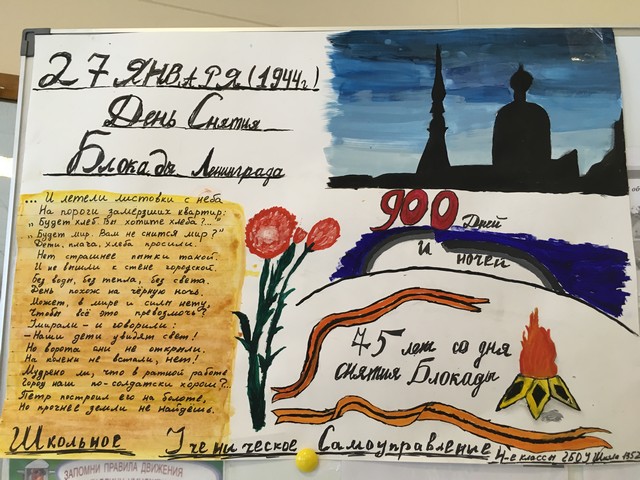 27 ЯНВАРЯ (1944г)
День Снятия
Блокады Ленинграда
... И летели листовки с неба
На пороги замерзших квартир:
"Будет хлеб. Вы хотите хлеба?..."
"Будет мир. Вам не снится мир?"
Дети, плача, хлеба просили.
Нет страшнее пытки такой.
И не вышли к стене городской.
Без воды, без тепла, без света.
День похож на чёрную ночь.
Может, в мире и силы нету,
Чтобы всё это превозмочь?
Умирали - и говорили:
- Наши дети увидят свет!
Но ворота они не открыли.
На колени не встали, нет!
Мудрено ли, что в ратной работе
Город наш по-солдатски хорош?..
Петр построил его на болоте,
Но прочнее земли не найдёшь.
900 Дней
и ночей
75 лет со дня
снятия Блокады
Школьное Ученическое Самоуправление
4-е классы ГБОУ Школа 1352
ЗАПОМНИ ПРАВИЛА ДВИЖЕНИЯ